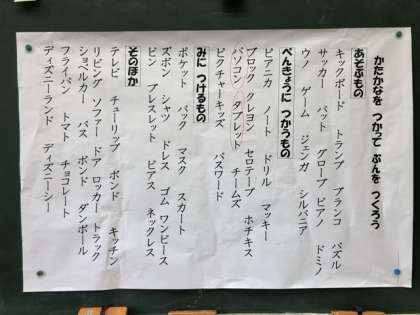 かたかなを つかって ぶんを つくろう
あそぶもの
キックボード トランプ ブランコ パズル
サッカー バット グローブ ピアノ ドミノ
ウノ ゲーム ジェンガ シルバニア
べんきょうに つかうもの
ピアニカ ノート ドリル マッキー
ブロック クレヨン セロテープ ホチキス
パソコン タブレット チームズ
ピクチャーキッズ パスワード
みに つけるもの
ポケット バック マスク スカート
ズボン シャツ ドレス ゴム ワンピース
ピン ブレスレット ピアス ネックレス
そのほか
テレビ チューリップ ボンド キッチン
リビング ソファー ドア ロッカー トラック
ショベルカー バス ボンド ダンボール
フライパン トマト チョコレート
ディズニーランド ディズニーシー